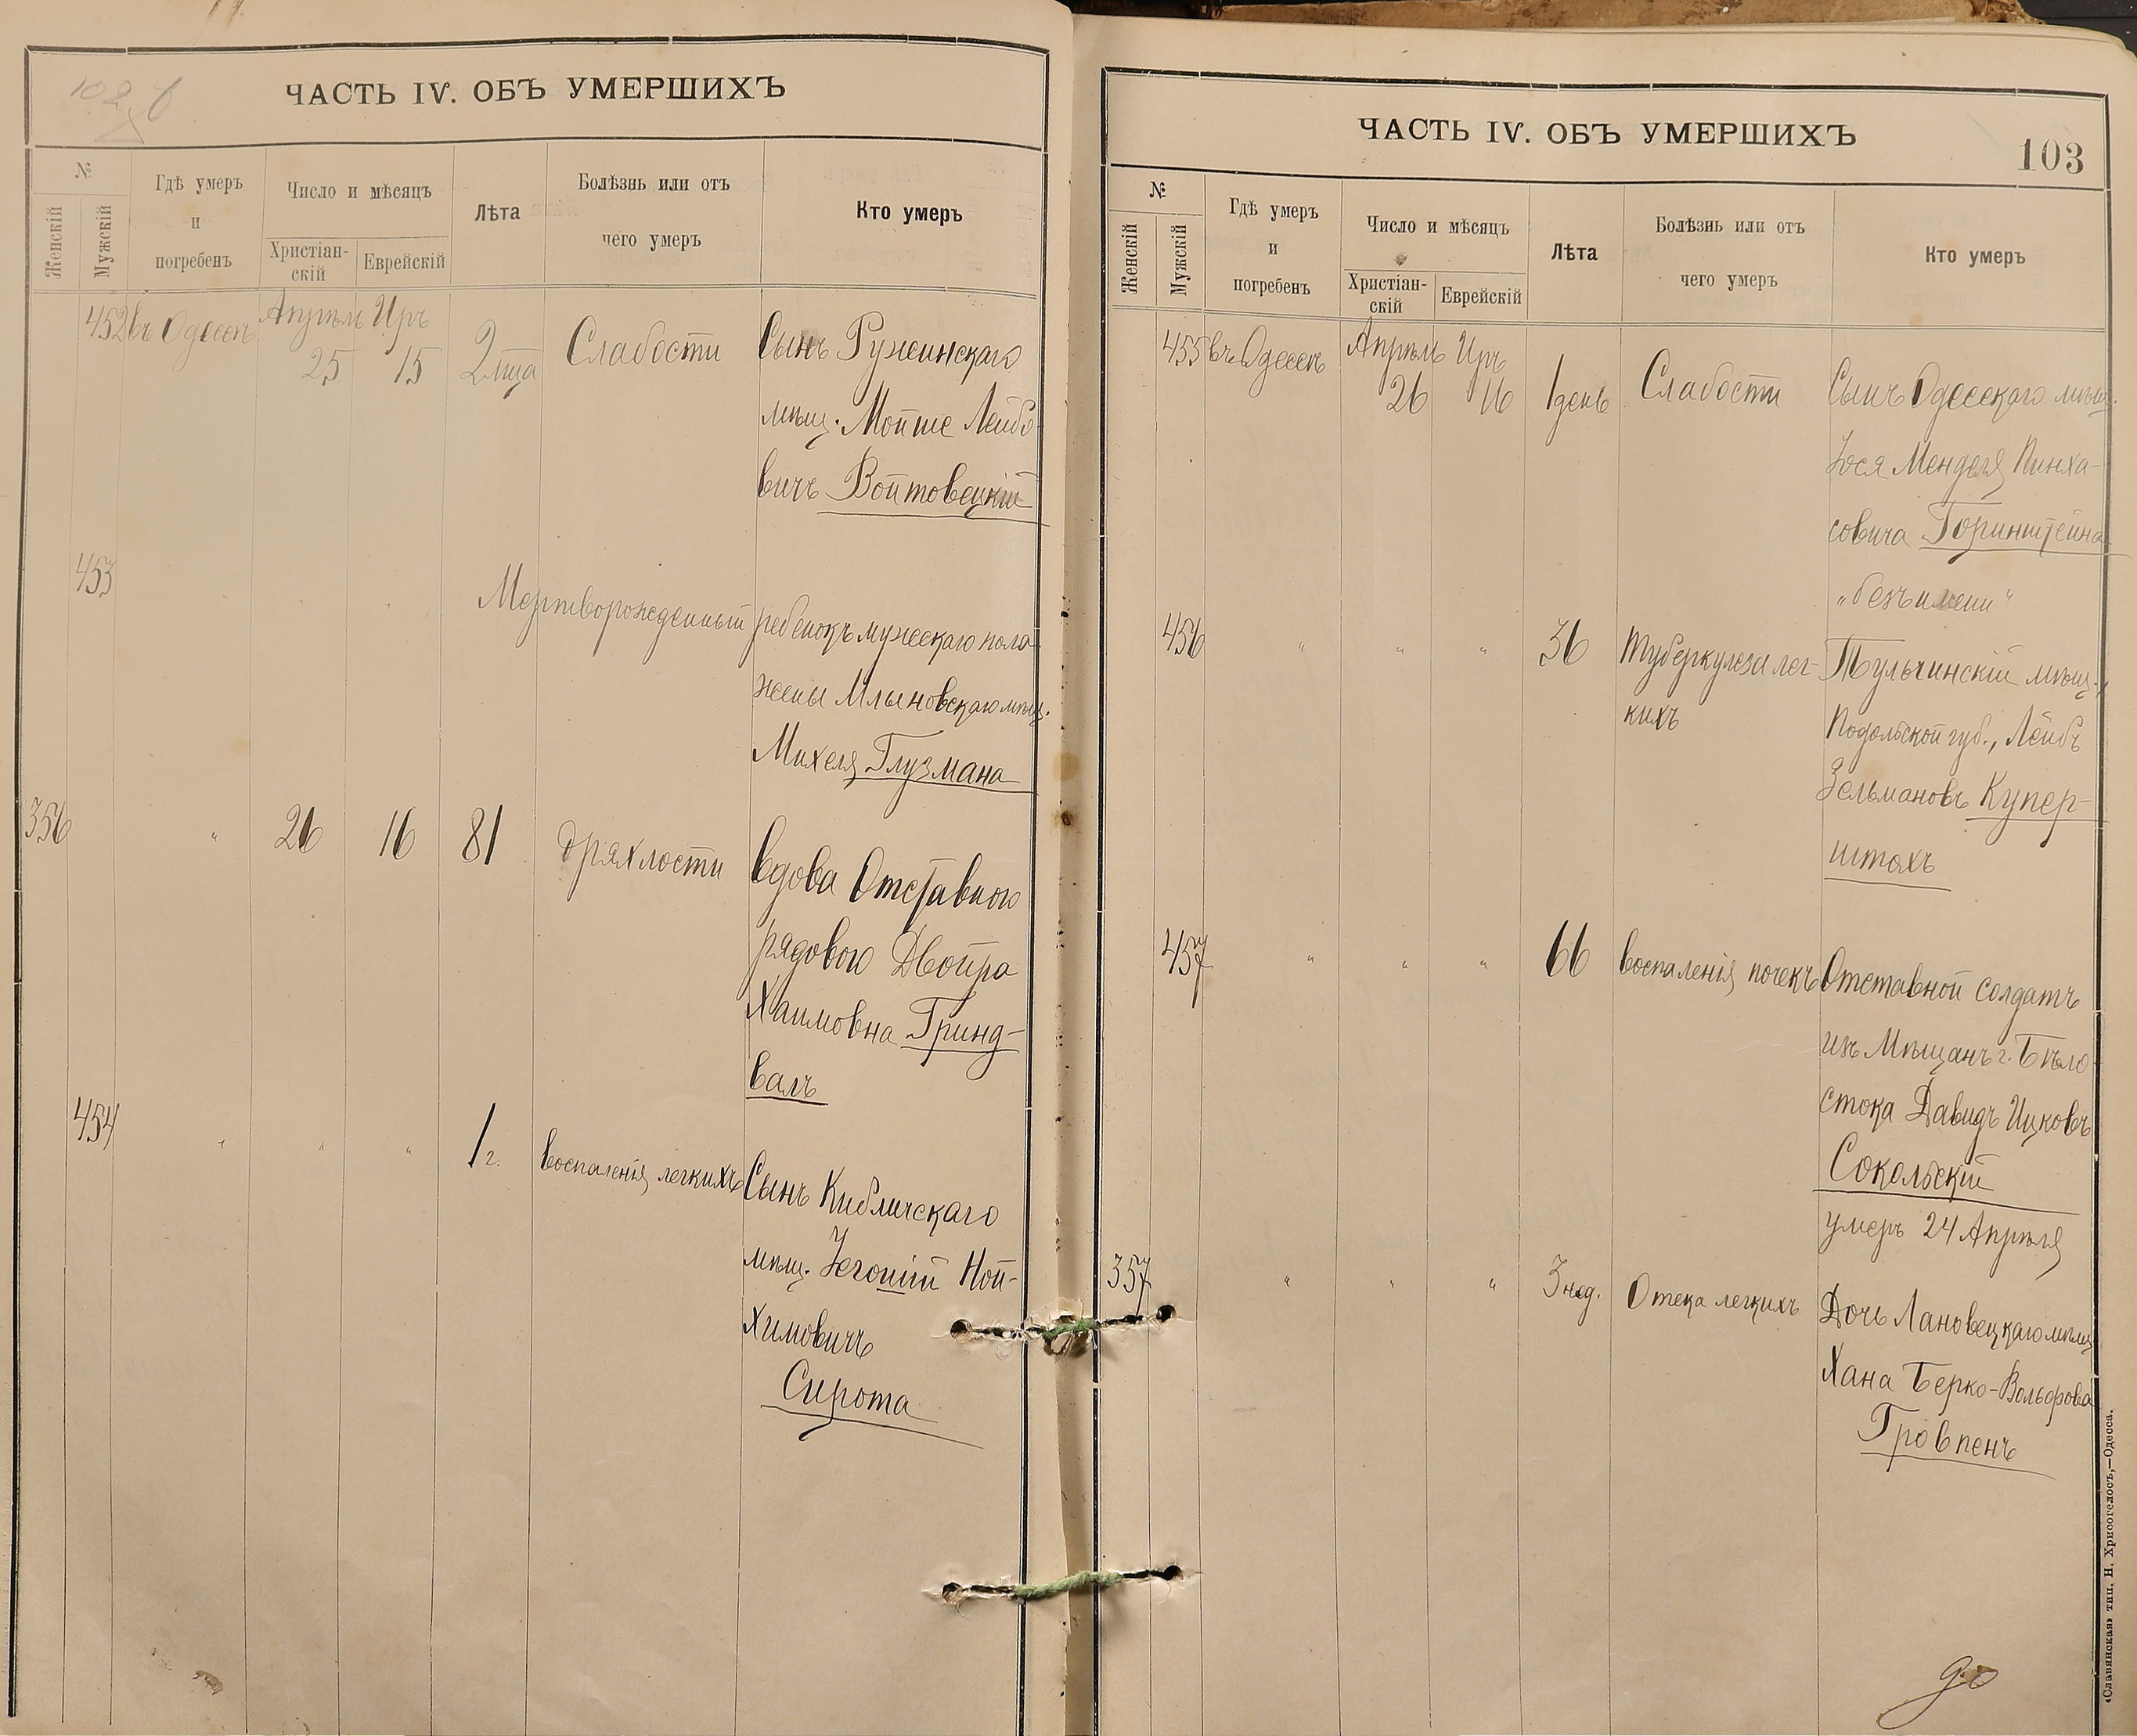 102 б
ЧАСТЬ IV. ОБЪ УМЕРШИХЪ
№
Женскій
Мужскій
Гдѣ умеръ
и
погребенъ
Число и мѣсяцъ
Христіан-
скій
Еврейскій
Лѣта
Болѣзнь или отъ
чего умеръ
Кто умеръ
452 въ Одессѣ Апрѣль Иръ
25 15 2 мца Слабости Сынъ Ружинскаго
мѣщ. Мойше Лейбо-
вичъ Войтовецкій
453
Мертворожденный ребенокъ мужескаго пола
жены Млыновскаго мѣщ.
Михеля Глузмана
356 " 26 16 81 дряхлости Вдова Отставного
рядового Двойра
Хаимовна Гринд-
валъ
454 " " " 1 г. воспаленія легкихъ Сынъ Кибличскаго
мѣщ. Ной-
химовичъ
Сирота
ЧАСТЬ IV. ОБЪ УМЕРШИХЪ
103
№
Женскій
Мужскій
Гдѣ умеръ
и
погребенъ
Число и мѣсяцъ
Христіан-
скій
Еврейскій
Лѣта
Болѣзнь или отъ
чего умеръ
Кто умеръ
455 въ Одессѣ Апрѣль Иръ
26 16 1 день Слабости Сынъ Одесскаго мѣщ.
Іося Менделя Пинха-
совича Горинштейна
"безъ имени"
456 " " " 36 Туберкулеза лег-
кихъ
Тульчинскій мѣщ.,
Подольской губ., Лейбъ
Зельмановъ Купер-
штохъ
457 " " " 66 воспаленія почекъ Отставной солдатъ
изъ Мѣщанъ г. Бѣло-
стока Давидъ Ицковъ
Сокольскій
умеръ 24 Апрѣля
357 " " " 3 нед. Отека легкихъ Дочь Лановецкаго мѣщ.
Хана Берко-Вольфова
Гровпенъ
«Славянская» тип. Н. Хрисогелосъ,—Одесса.